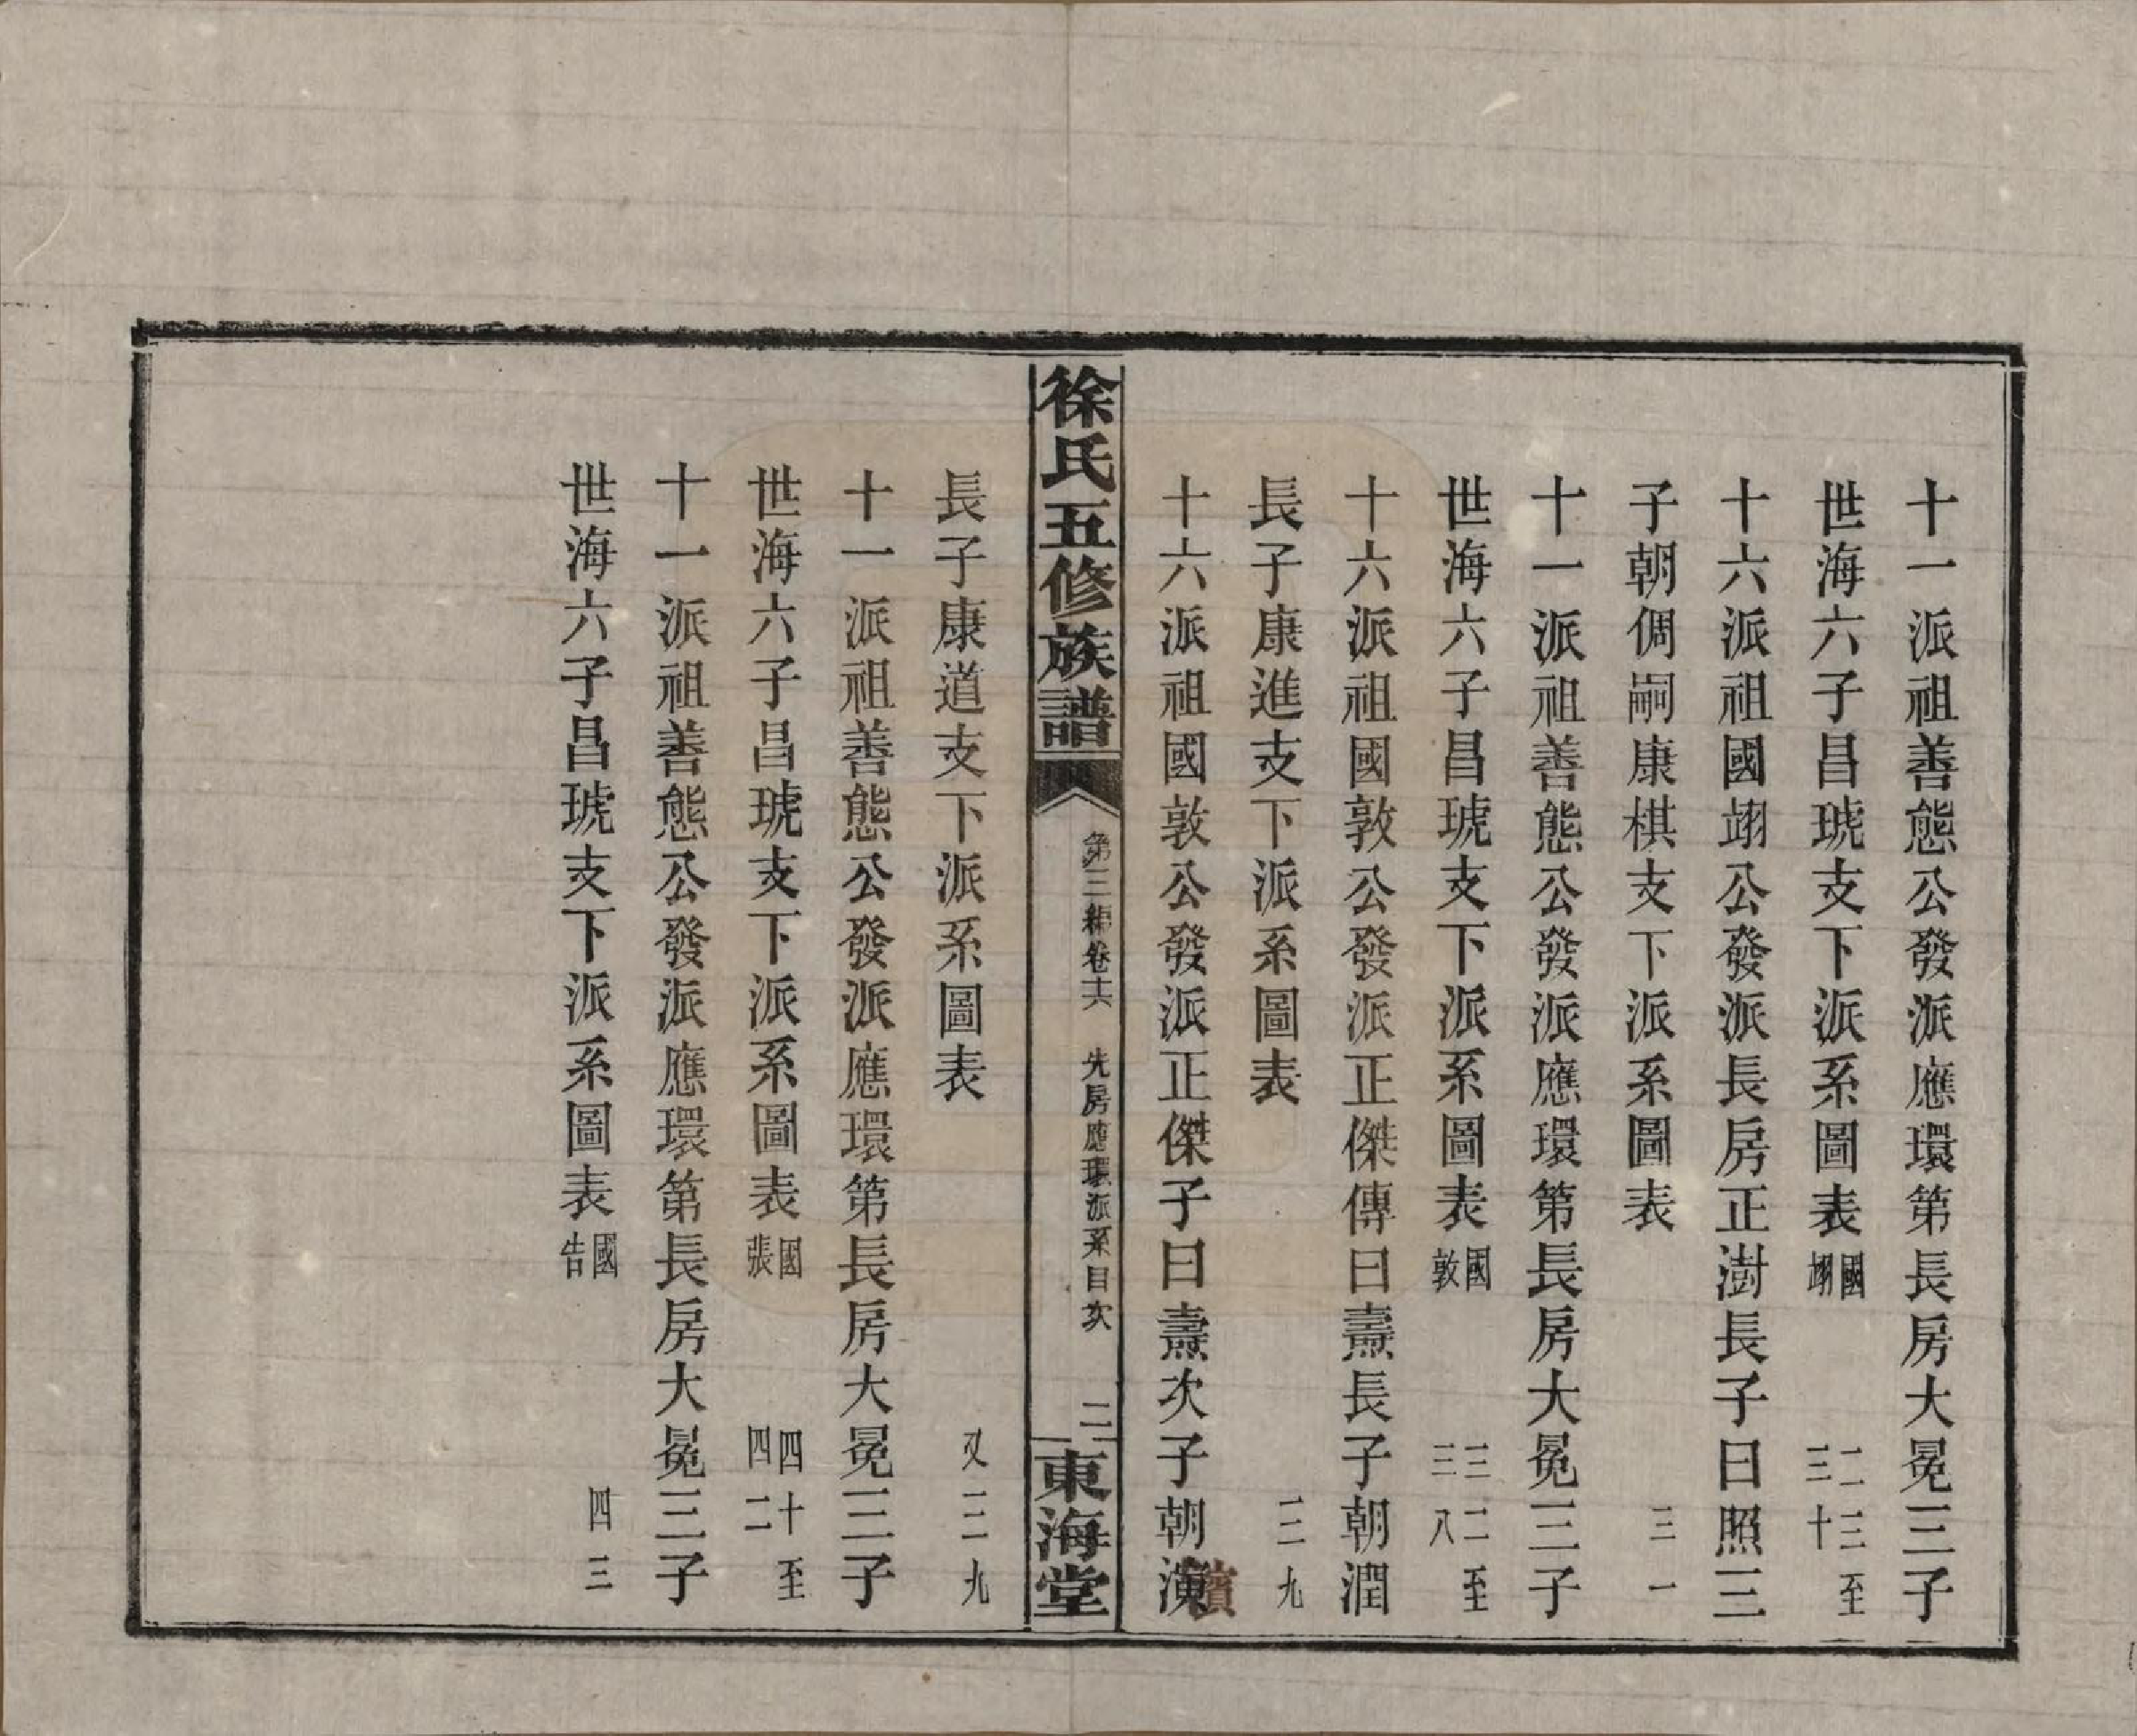 十一派祖善態公發派應環第長房大冕三子
世海六子昌琥支下派系圖表國翊 二三至三十
十六派祖國翊公發派長房正澍長子曰照三
子朝倜嗣康棋支下派系圖表 三一
十一派祖善態公發派應環第長房大冕三子
世海六子昌琥支下派系圖表國敦 三二至三八
十六派祖國敦公發派正傑傳曰燾長子朝潤
長子康進支下派系圖表 三九
十六派祖國敦公發派正傑子曰燾次子朝演濱
徐氏五修族譜 第三編卷十六 先房應環派系目次 二 東海堂
長子康道支下派系圖表 又三九
十一派祖善態公發派應環第長房大冕三子
世海六子昌琥支下派系圖表國張 四十至四二
十一派祖善態公發派應環第長房大冕三子
世海六子昌琥支下派系圖表國告 四三